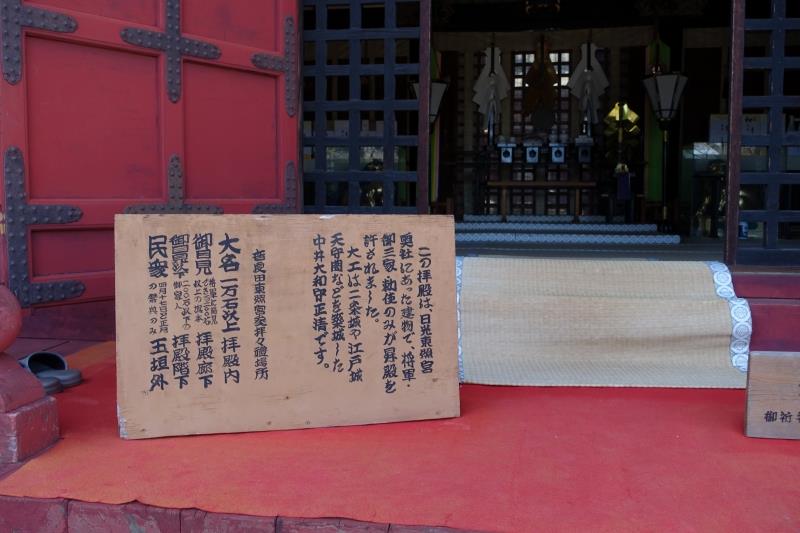 この拝殿は、日光東照宮
奥社にあった建物で、将軍・
御三家、勅使のみが昇殿を
許されました。
大工は二条城や江戸城
天守閣などを築城した
中井大和守正清です。
世良田東照宮参拝之禮場所
大名 一万石以上 拝殿内
御目見 将軍に謁見でき二〇〇石以上の旗本 拝殿廊下
御目見以下 二〇〇石以下の御家人 拝殿階下
民衆 四月十七日と正月の祭典のみ 玉垣外
御祈